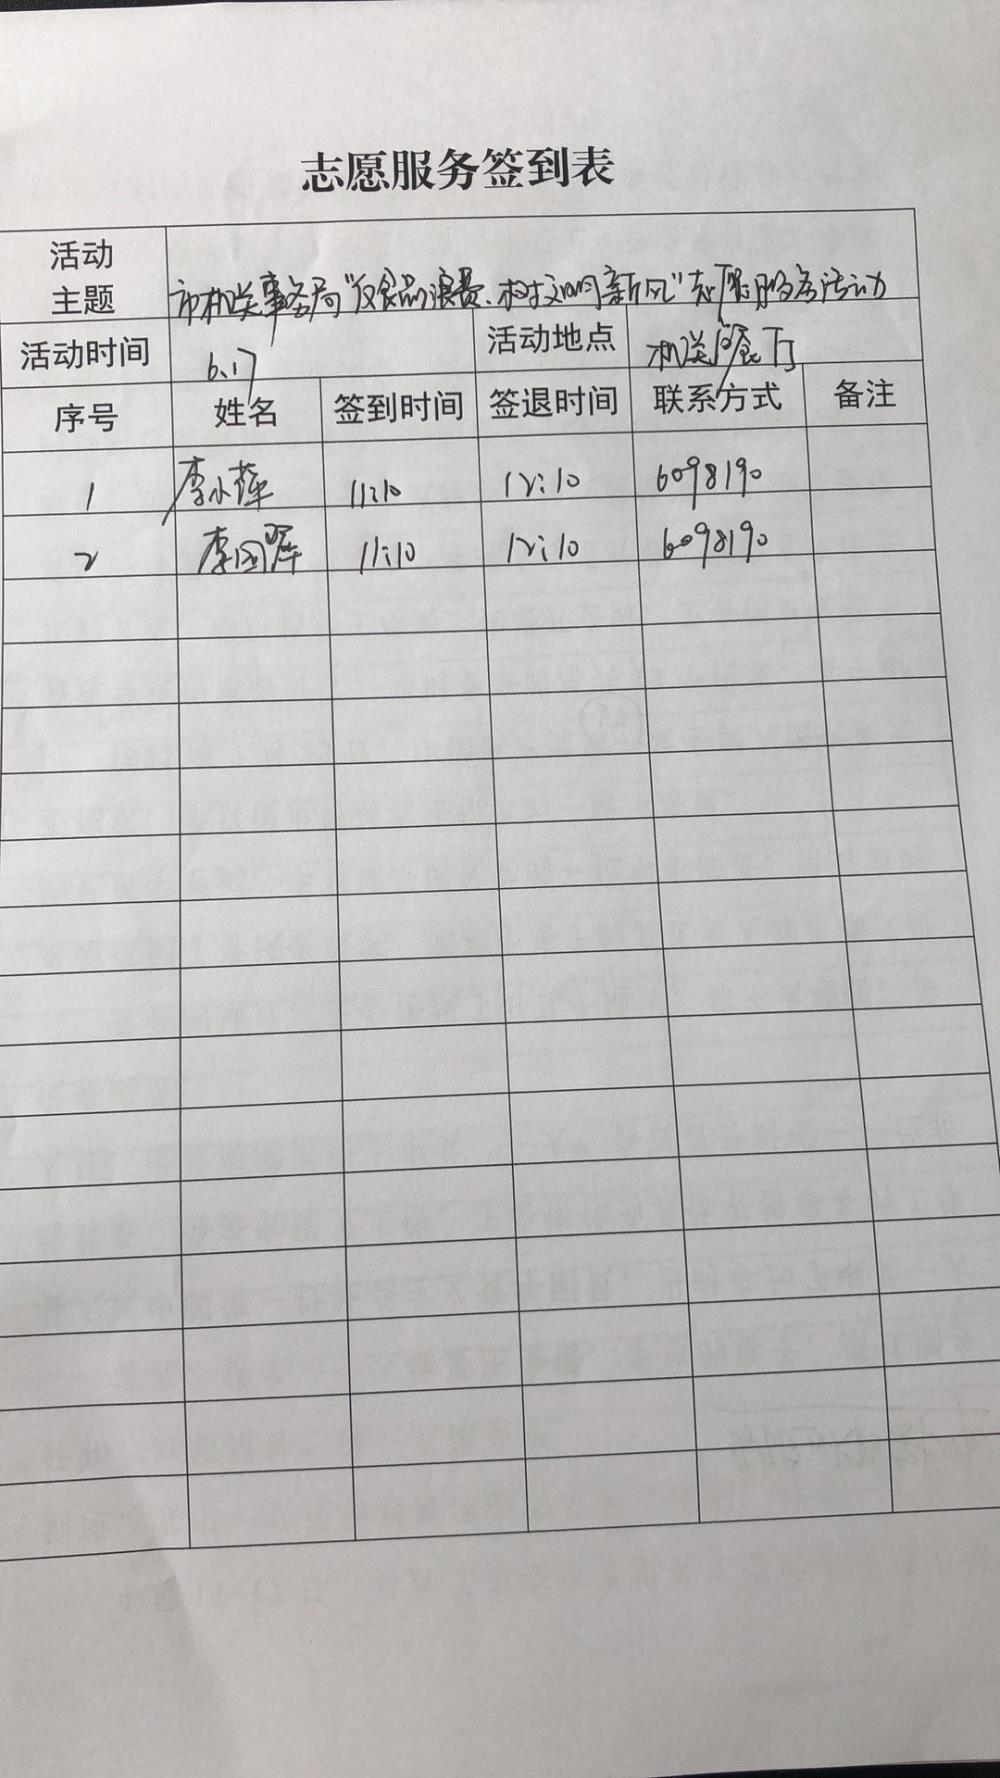 志愿服务签到表
活动
主题
市机关事务局“反食品浪费、树文明新风”志愿服务活动
活动时间 6.17 活动地点 机关餐厅
序号 姓名 签到时间 签退时间 联系方式 备注
1 李小萍 11:10 12:10 6098190
2 李国 11:10 12:10 6098190